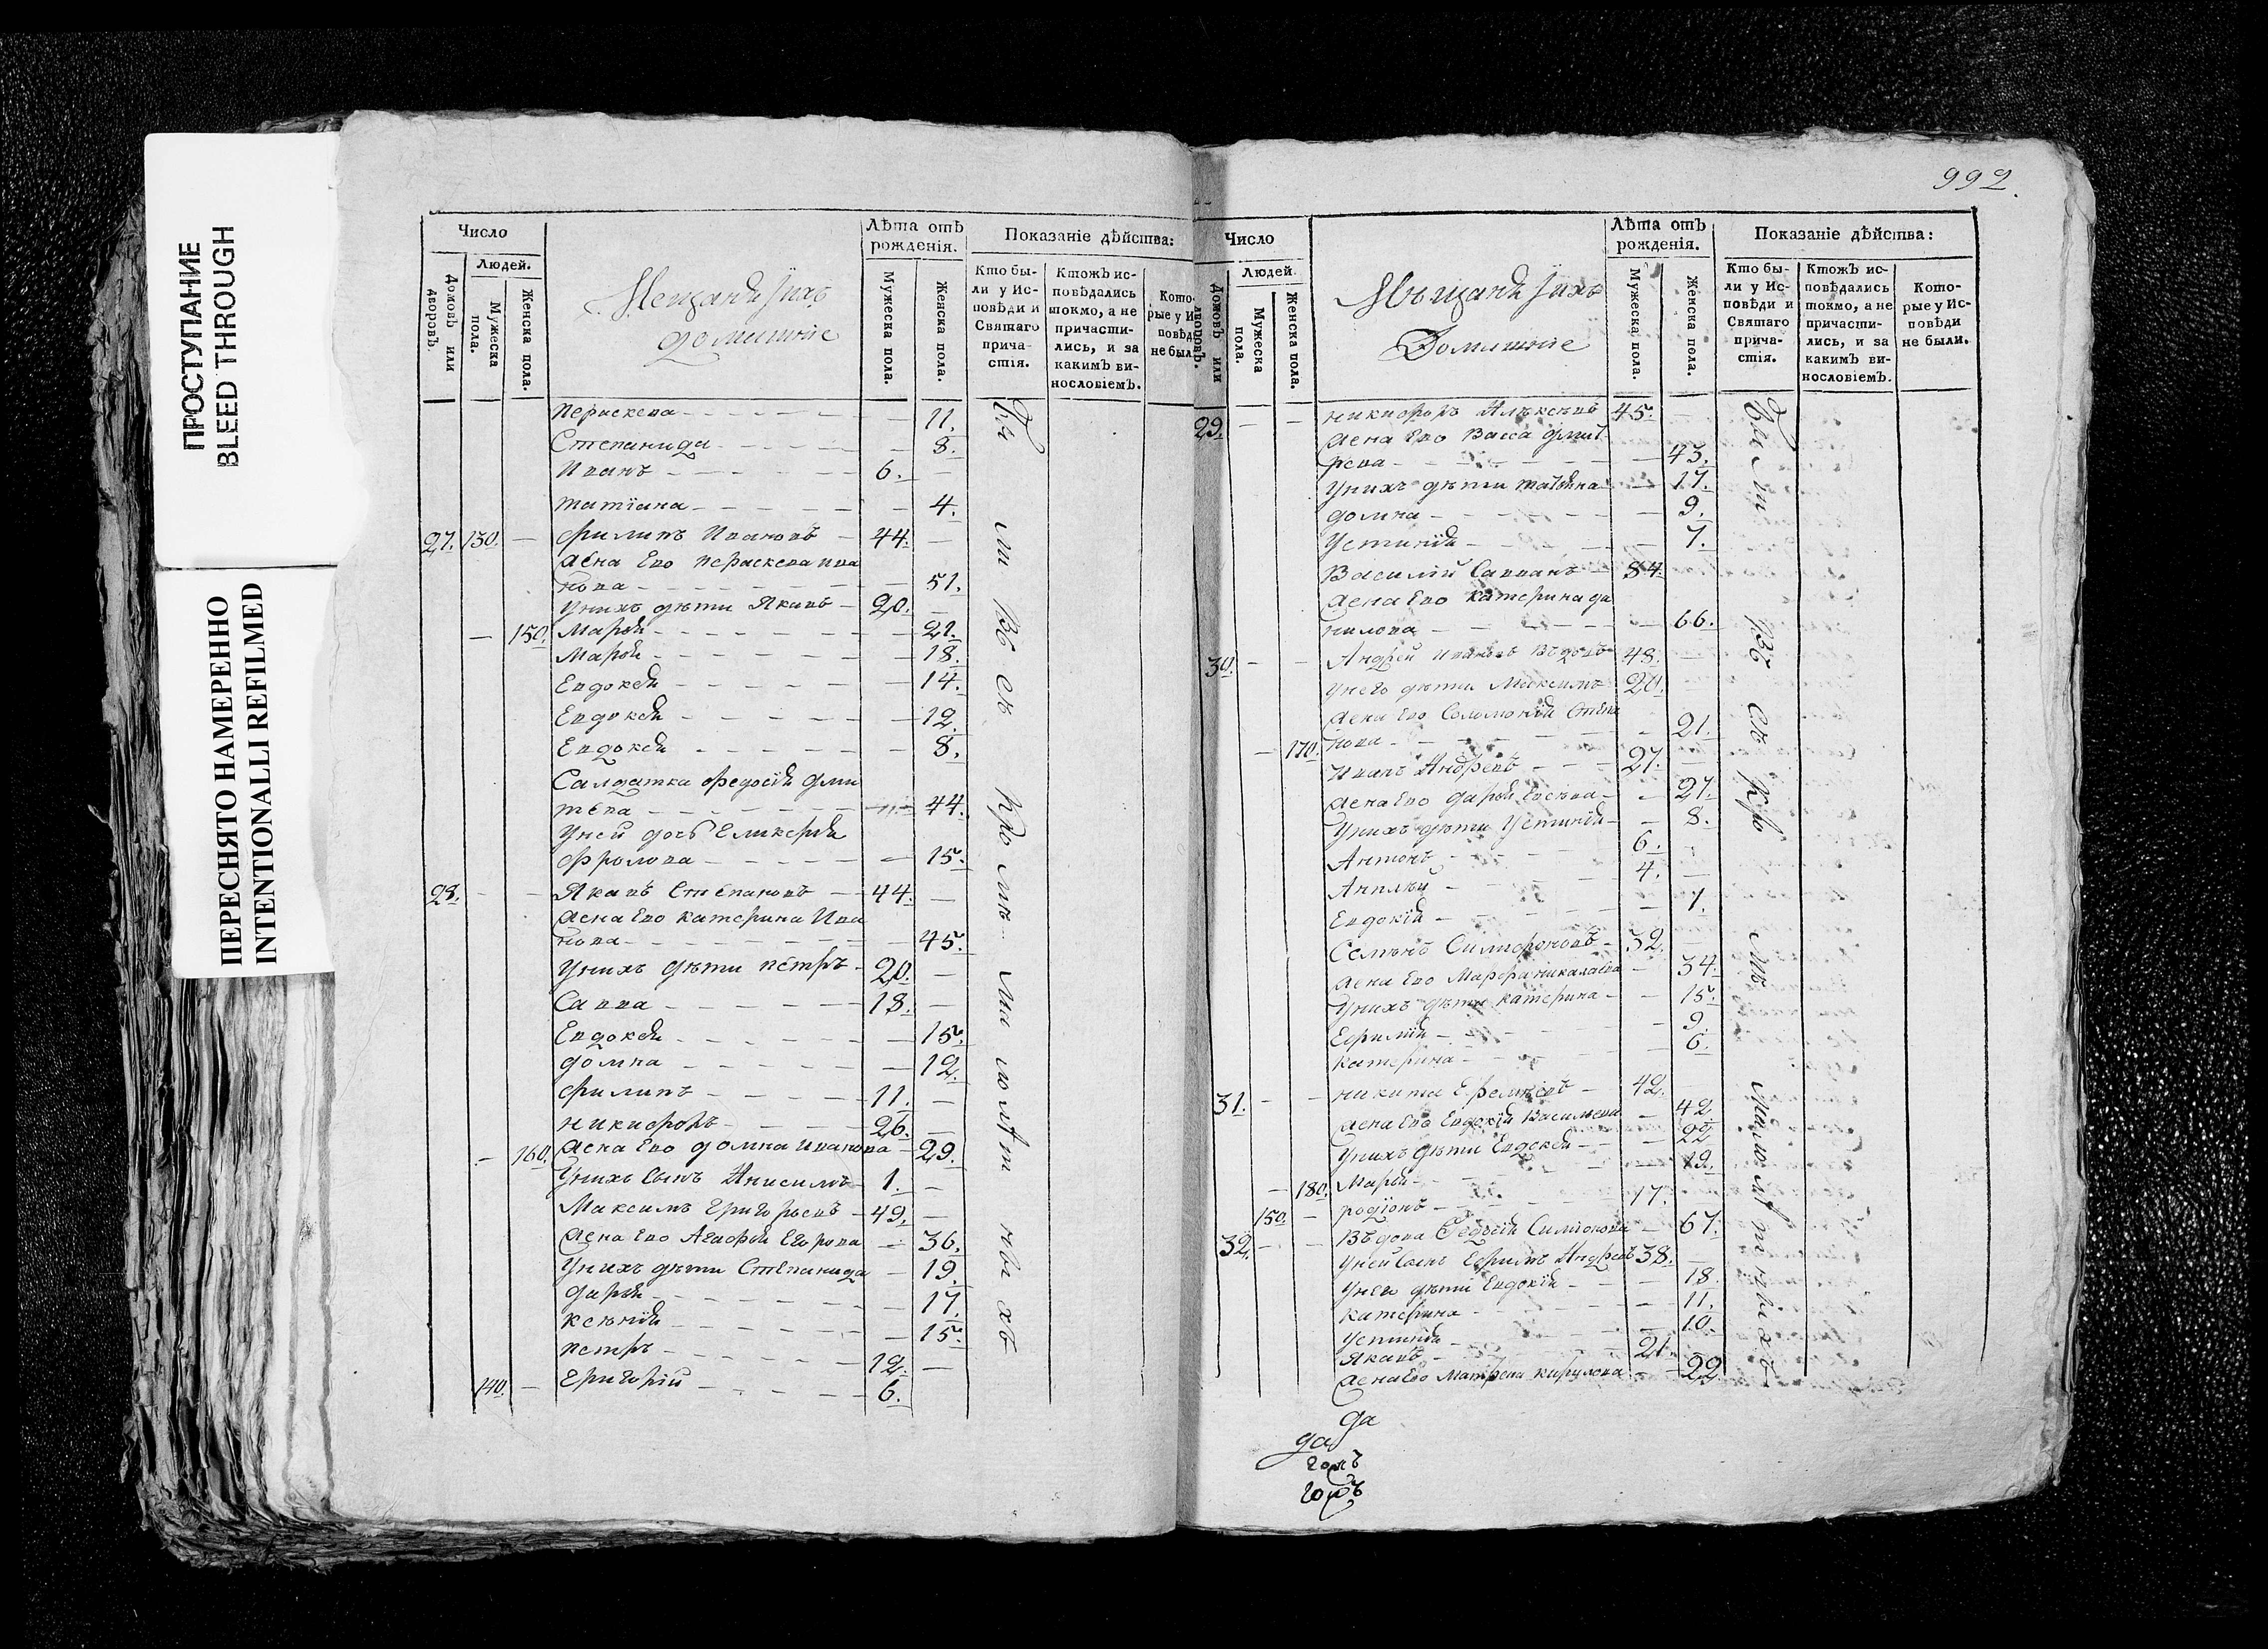 ПРОСТУПАНИЕ
BLEED THROUGH
ПЕРЕСНЯТО НАМЕРЕННО
INTENTIONALLI REFILMED
Число
Людей.
Домовъ или дворовъ.
Мужеска пола.
Женска пола.
Мещане ї ихъ
домашніе
Лѣта отъ рожденія.
Мужеска пола.
Женска пола.
Показаніе дѣйства:
Кто были у Исповѣди и Святаго причастія.
Ктожъ исповѣдались токмо, а не причастились, и за какимъ винословіемъ.
Которые у Исповѣди не были.
Пераскева 11.
Степанида 8.
Иванъ 6.
Татїана 4.
27. 130. Филипъ Ивановъ 44.
жена Ево Пераскева Ива
нова 51.
Унихъ дѣти Яковъ 20.
150. Марья 21.
Марья 18.
Евдокея 14.
Евдокея 12.
Евдокея 8.
Салдатка Федосїя Дми
тева 44.
Уней дочь Гликерья
Фролова 15.
28. Яковъ Степановъ 44.
жена Ево Катерина Ива
нова 45.
Унихъ дѣти Петръ 20.
Савва 18.
Евдокея 15.
Домна 12.
Филипъ 11.
Никифоръ 26.
160. жена Ево Домна Иванова 29.
Унихъ сынъ Анисимъ 1.
Максимъ Григорьевъ 49.
жена Ево Агафья Егорова 36.
Унихъ дѣти Степанида 19.
Дарья 17.
Ксенїя 15.
Петръ 12.
140. Григорїй 6.
992.
Число
Людей.
Домовъ или дворовъ.
Мужеска пола.
Женска пола.
Мѣщане ї ихъ
Домашніе
Лѣта отъ рожденія.
Мужеска пола.
Женска пола.
Показаніе дѣйства:
Кто были у Исповѣди и Святаго причастія.
Ктожъ исповѣдались токмо, а не причастились, и за какимъ винословіемъ.
Которые у Исповѣди не были.
29. Никифоръ Алѣксѣевъ 45.
жена Ево Васса Дмит
рева 43.
Унихъ дѣти Татїана 17.
Домна 9.
Устинїя 7.
Василїй Савванъ 84.
жена Ево Катерина Да
нилова 66.
30. Андрей Ивановъ Вдовъ 48.
Унего дѣти Максимъ 20.
жена Ево Соломонїя Степа
170. нова 21.
Иванъ Андреевъ 27.
жена Ево Дарья 27.
Унихъ дѣти Устинїя 8.
Антонъ 6.
4.
Евдокїя 1.
Семенъ 32.
жена Ево Марфа Николаева 34.
Унихъ дѣти Катерина 15.
Ефимїя 9.
Катерина 6.
31. Никита 42.
жена Ево Евдокїя Васильева 42.
Унихъ дѣти Евдокея 22.
180. Марья 19.
150. Родїонъ 17.
32. Вдова Федосїя Симионова 67.
Уней сынъ Ефимъ Андреевъ 38.
Унего дѣти Евдокїя 18.
Катерина 11.
Устинїя 10.
Яковъ 21.
жена Ево Матрена Кирилова 22.
да
да